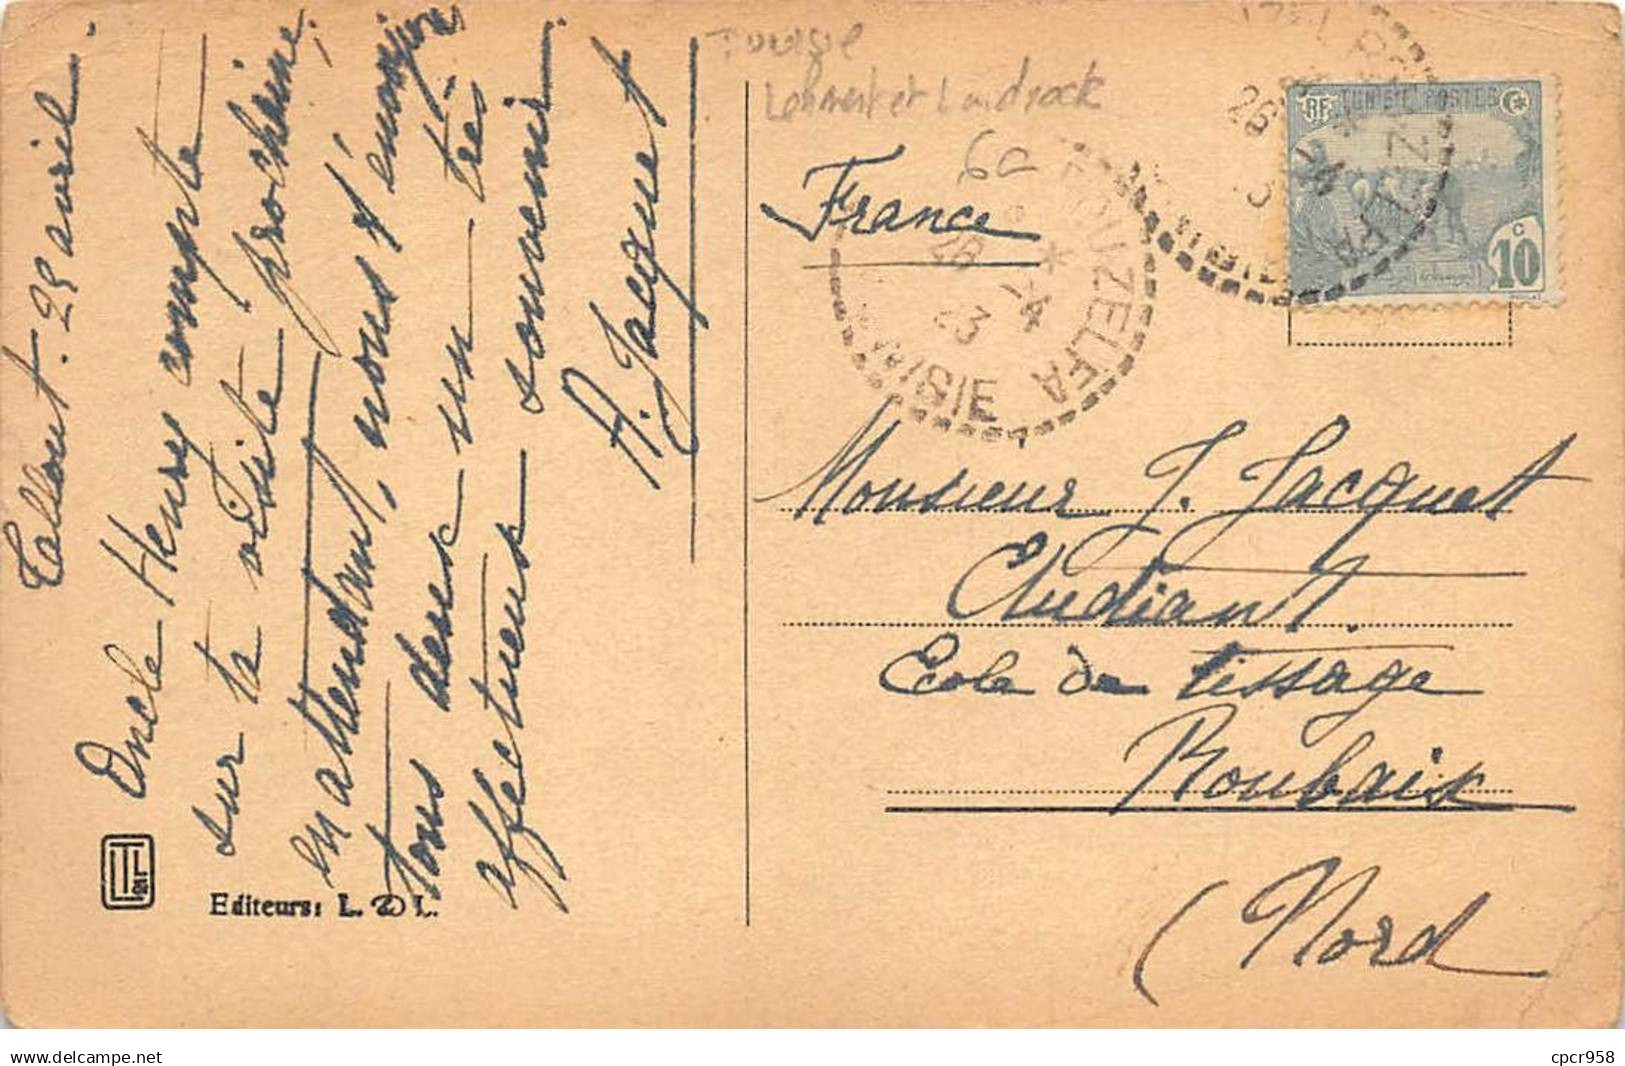 Tallout. 25 avril.
Oncle Henry compte
sur ta visite prochaine;
en attendant, nous t'envoyons
tous deux un très
affectueux souvenir.
A. Jacquet
Editeurs: L. & L.
Tunisie
Lehnert et Landrock
6c
France
BOUZELFA
26 -4
23
TUNISIE
RF TUNISIE POSTES
10 c
Monsieur J. Jacquet
Etudiant.
Ecole de tissage
Roubaix
(Nord
cpcr958